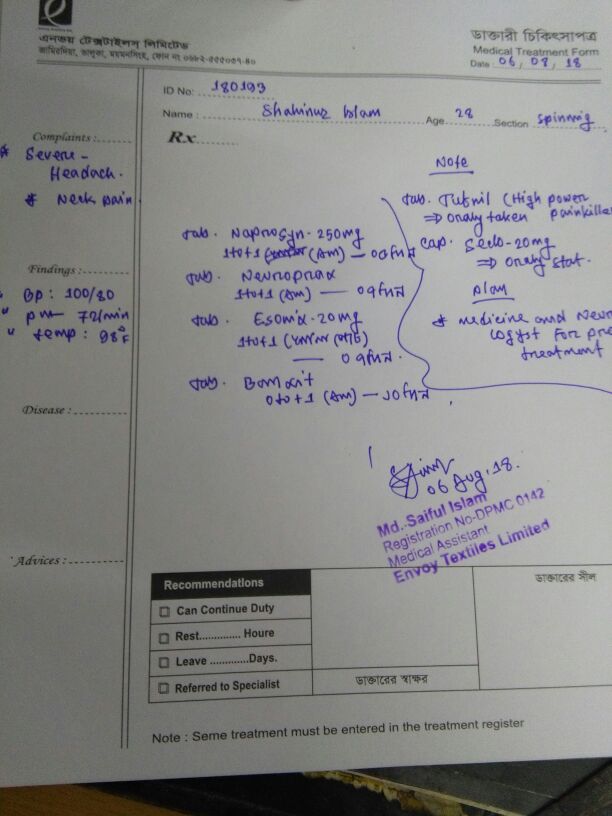 এনভয় টেক্সটাইলস লিমিটেড
জামিরদিয়া, ভালুকা, ময়মনসিংহ, ফোন নং ০৬৮২-৫৫৫০৩৭-৪০
ডাক্তারী চিকিৎসাপত্র
Medical Treatment Form
Date : 06, 08, 18
ID No: 180193
Name : Shahinur Islam Age 28 Section Spinning
Complaints :
* Severe -
Headach.
* Neck pain
Findings :
" BP : 100/80
" 72/min
" temp : 98°F
Disease :
Advices :
Rx
Tab. Naprosyn - 250mg
1+0+1 (Am) —
Tab. Neuroprax
1+0+1 (Am) — ০৭দিন
Tab. Esomix - 20mg
1+0+1
— ০৭দিন.
Tab.
0+0+1 (Am) — ১০দিন,
Note
Tab. (High power
⇒ oraly taken painkiller
Cap. Seclo - 20mg
⇒ oraly stat.
plan
* medicine and Neuro
logyst For
treatment
06 Aug. 18.
Md. Saiful Islam
Registration No-DPMC 0142
Medical Assistant
Envoy Textiles Limited
Recommendations
Can Continue Duty
Rest............. Houre
Leave ............Days.
Referred to Specialist
ডাক্তারের স্বাক্ষর
ডাক্তারের সীল
Note : Seme treatment must be entered in the treatment register